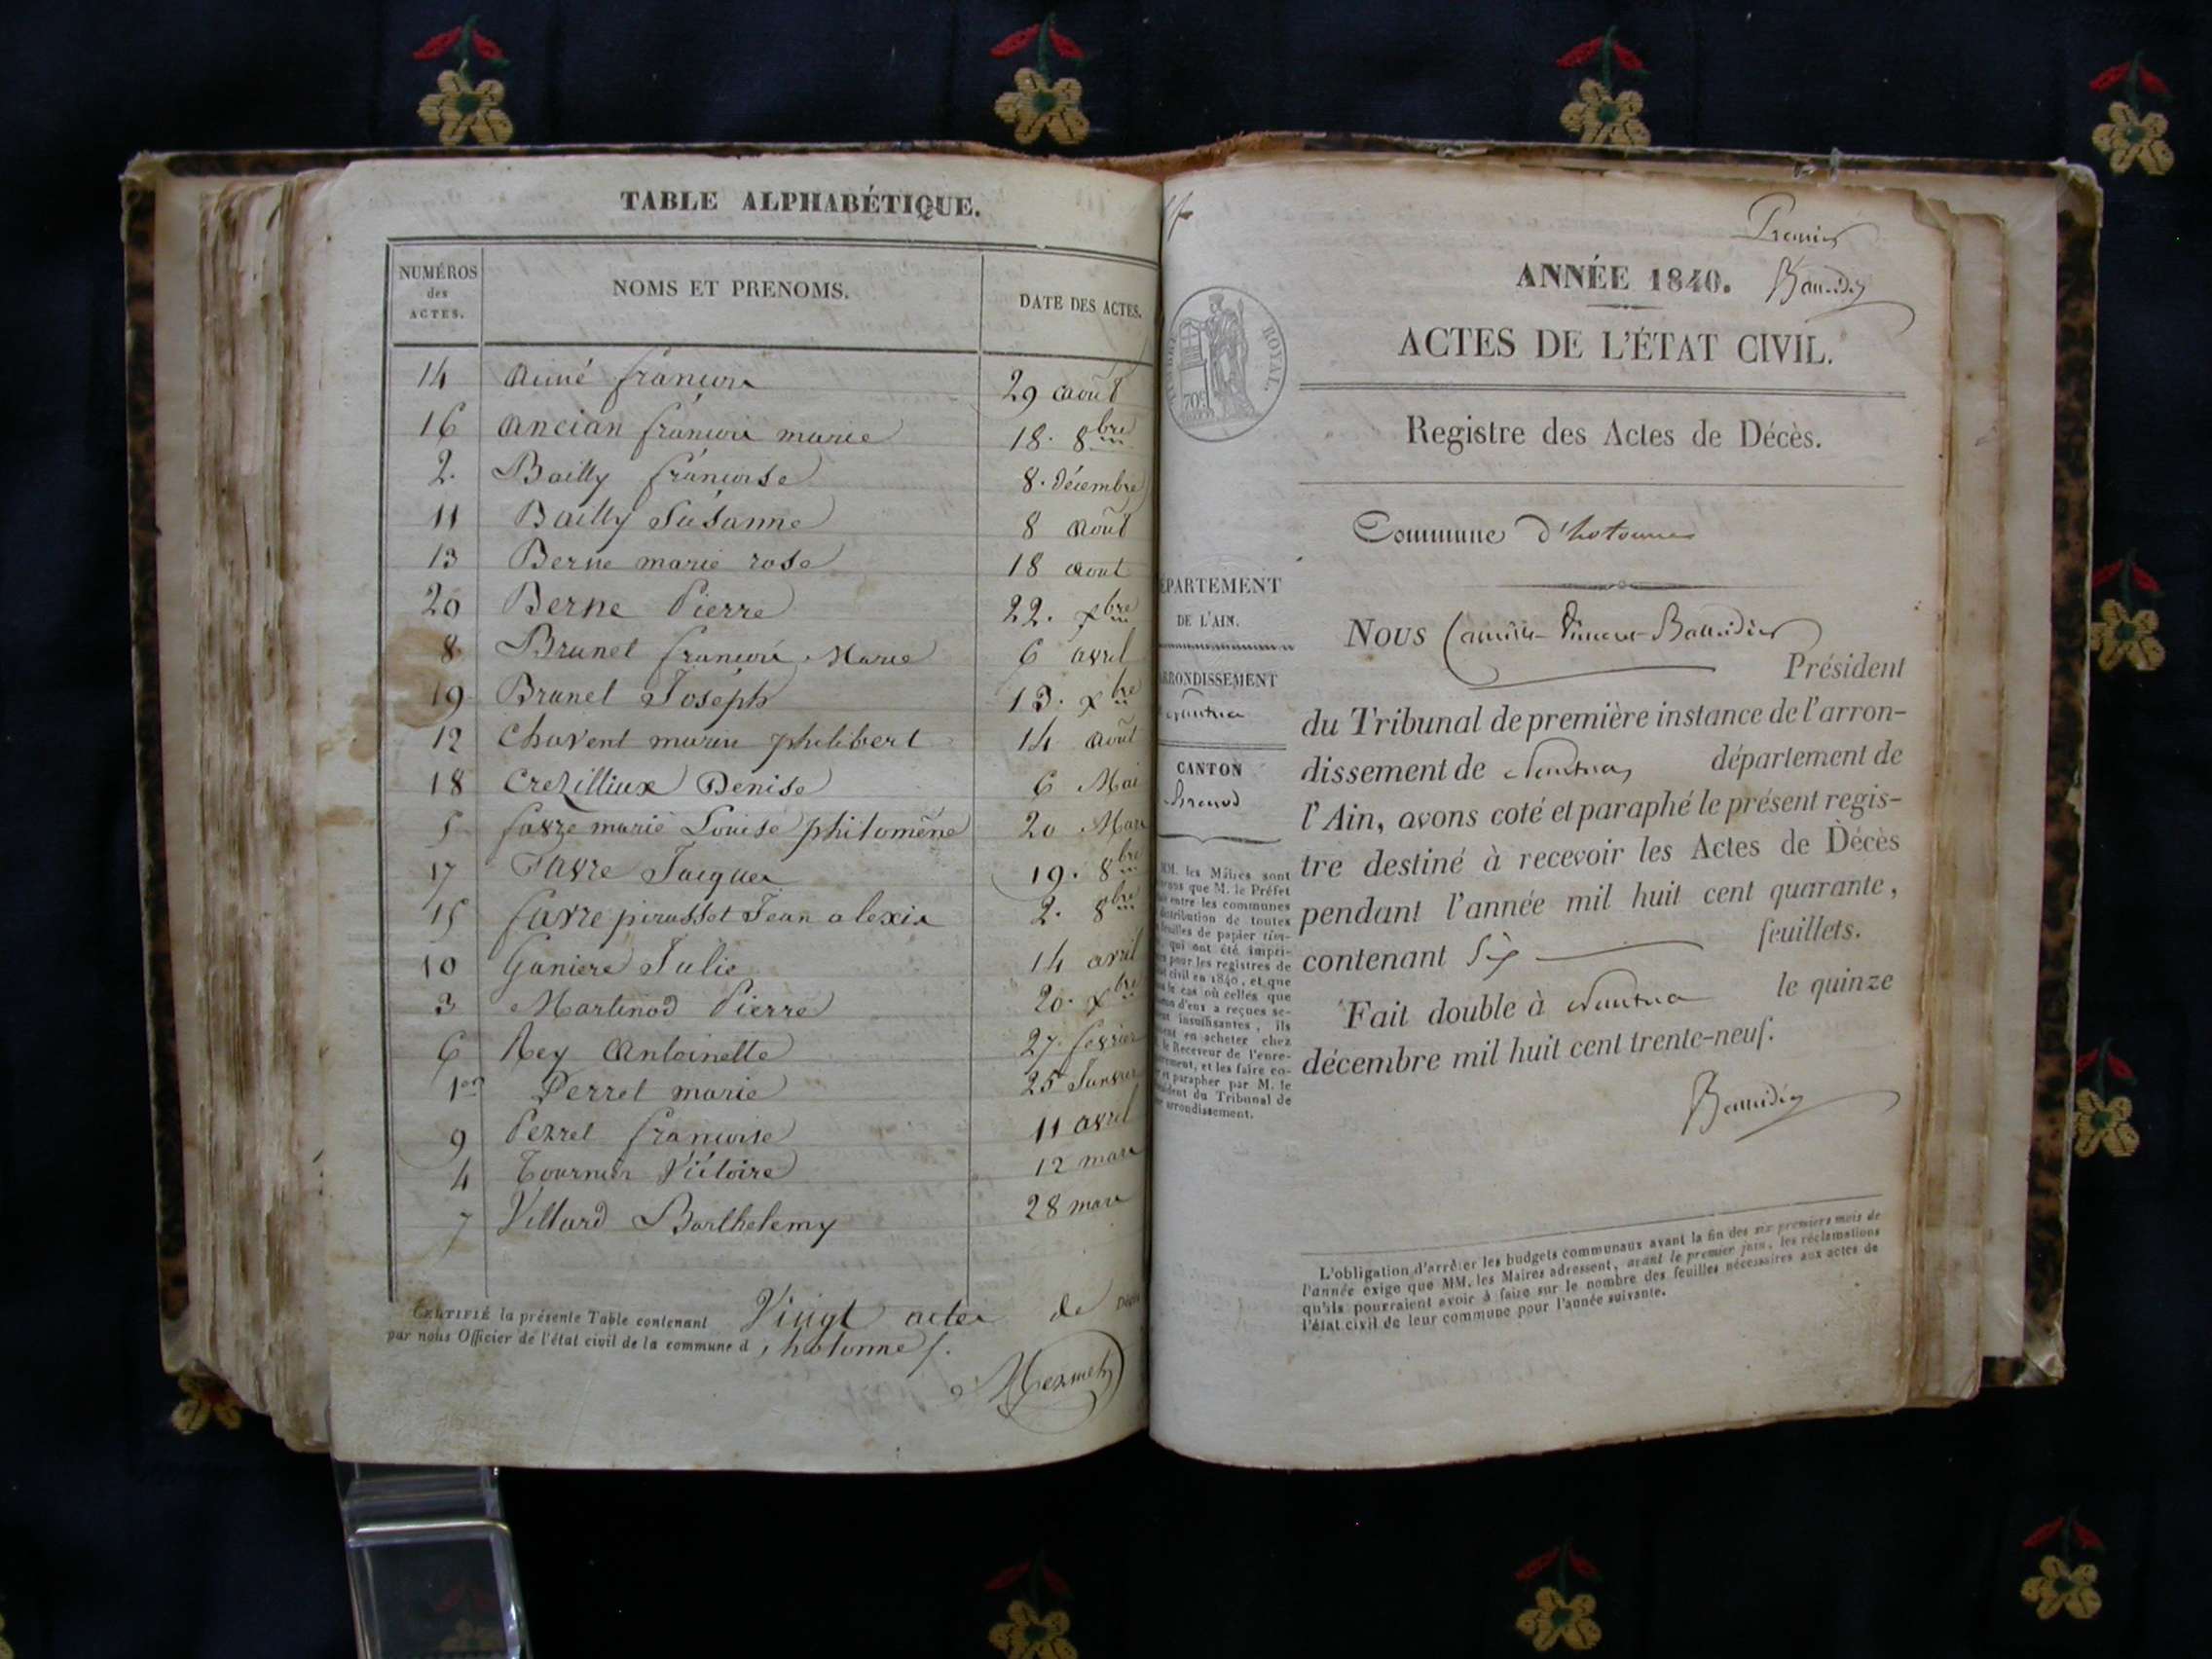 TABLE ALPHABÉTIQUE.
NUMÉROS des ACTES. NOMS ET PRENOMS. DATE DES ACTES.
14 Aimé françois 29 aout
16 Ancian françois marie 18. 8bre
2. Bailly françoise 8. décembre
11 Bailly Susanne 8 Aout
13 Berne marie rose 18 Aout
20 Berne Pierre 22. xbre
8 Brunet françois Marie 6 avril
19 Brunet Joseph 13. xbre
12 Chavent marin philibert 14 Aout
18 Crezilliux Denise 6 Mai
5 favre marie Louise philomène 20 Mars
17 Favre Jacques 19. 8bre
15 favre perusset Jean alexis 2. 8bre
10 Ganiere Julie 14 avril
3 Martinod Pierre 20. xbre
6 Rey Antoinette 27 fevrier
1er Perret marie 25 Janvier
9 Perret françoise 11 avril
4 Tournier Victoire 12 mars
7 Villard Barthelemy 28 mars
CERTIFIÉ la présente Table contenant Vingt actes de
par nous Officier de l'état civil de la commune d'hotonnes.
Premier
ANNÉE 1840. Baudier
ACTES DE L'ÉTAT CIVIL.
ROYAL.
Registre des Actes de Décès.
Commune d'hotonnes
DÉPARTEMENT
DE L'AIN.
ARRONDISSEMENT
Nantua
CANTON
Brenod
MM. les Maires sont
que M. le Préfet
entre les communes
distribution de toutes
feuilles de papier tim-
qui ont été impri-
pour les registres de
civil en 1840, et que
le cas où celles que
d'eux a reçues se-
insuffisantes, ils
en acheter chez
le Receveur de l'enre-
et les faire co-
et parapher par M. le
Président du Tribunal de
arrondissement.
Nous
Président
du Tribunal de première instance de l'arron-
dissement de Nantua, département de
l'Ain, avons coté et paraphé le présent regis-
tre destiné à recevoir les Actes de Décès
pendant l'année mil huit cent quarante,
contenant Six feuillets.
Fait double à Nantua le quinze
décembre mil huit cent trente-neuf.
Baudier
L'obligation d'arrêter les budgets communaux avant la fin des six premiers mois de
l'année exige que MM. les Maires adressent, avant le premier juin, les réclamations
qu'ils pourraient avoir à faire sur le nombre des feuilles nécessaires aux actes de
l'état civil de leur commune pour l'année suivante.